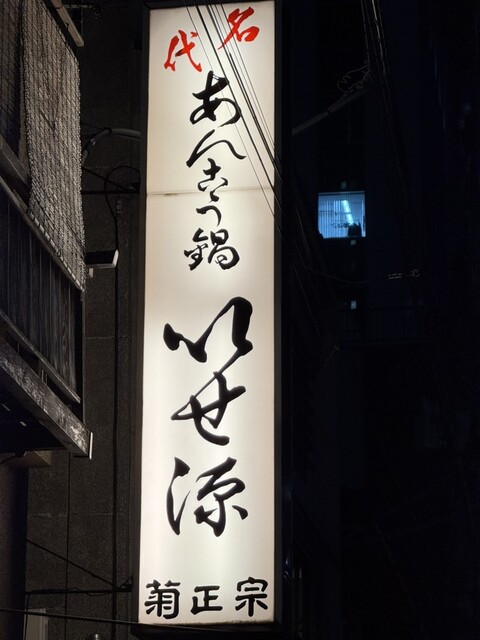 名代
あんこう鍋
いせ源
菊正宗